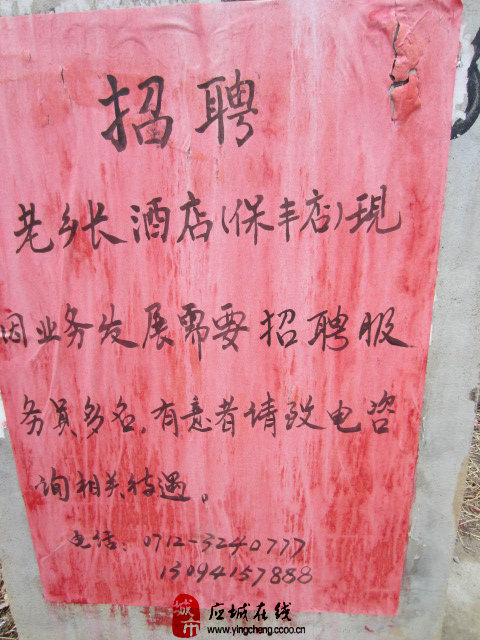 招聘
老乡长酒店(保丰店)现
因业务发展需要招聘服
务员多名,有意者请致电咨
询相关待遇。
电话:0712-3240777
13094157888
城市 应城在线
www.yingcheng.ccoo.cn